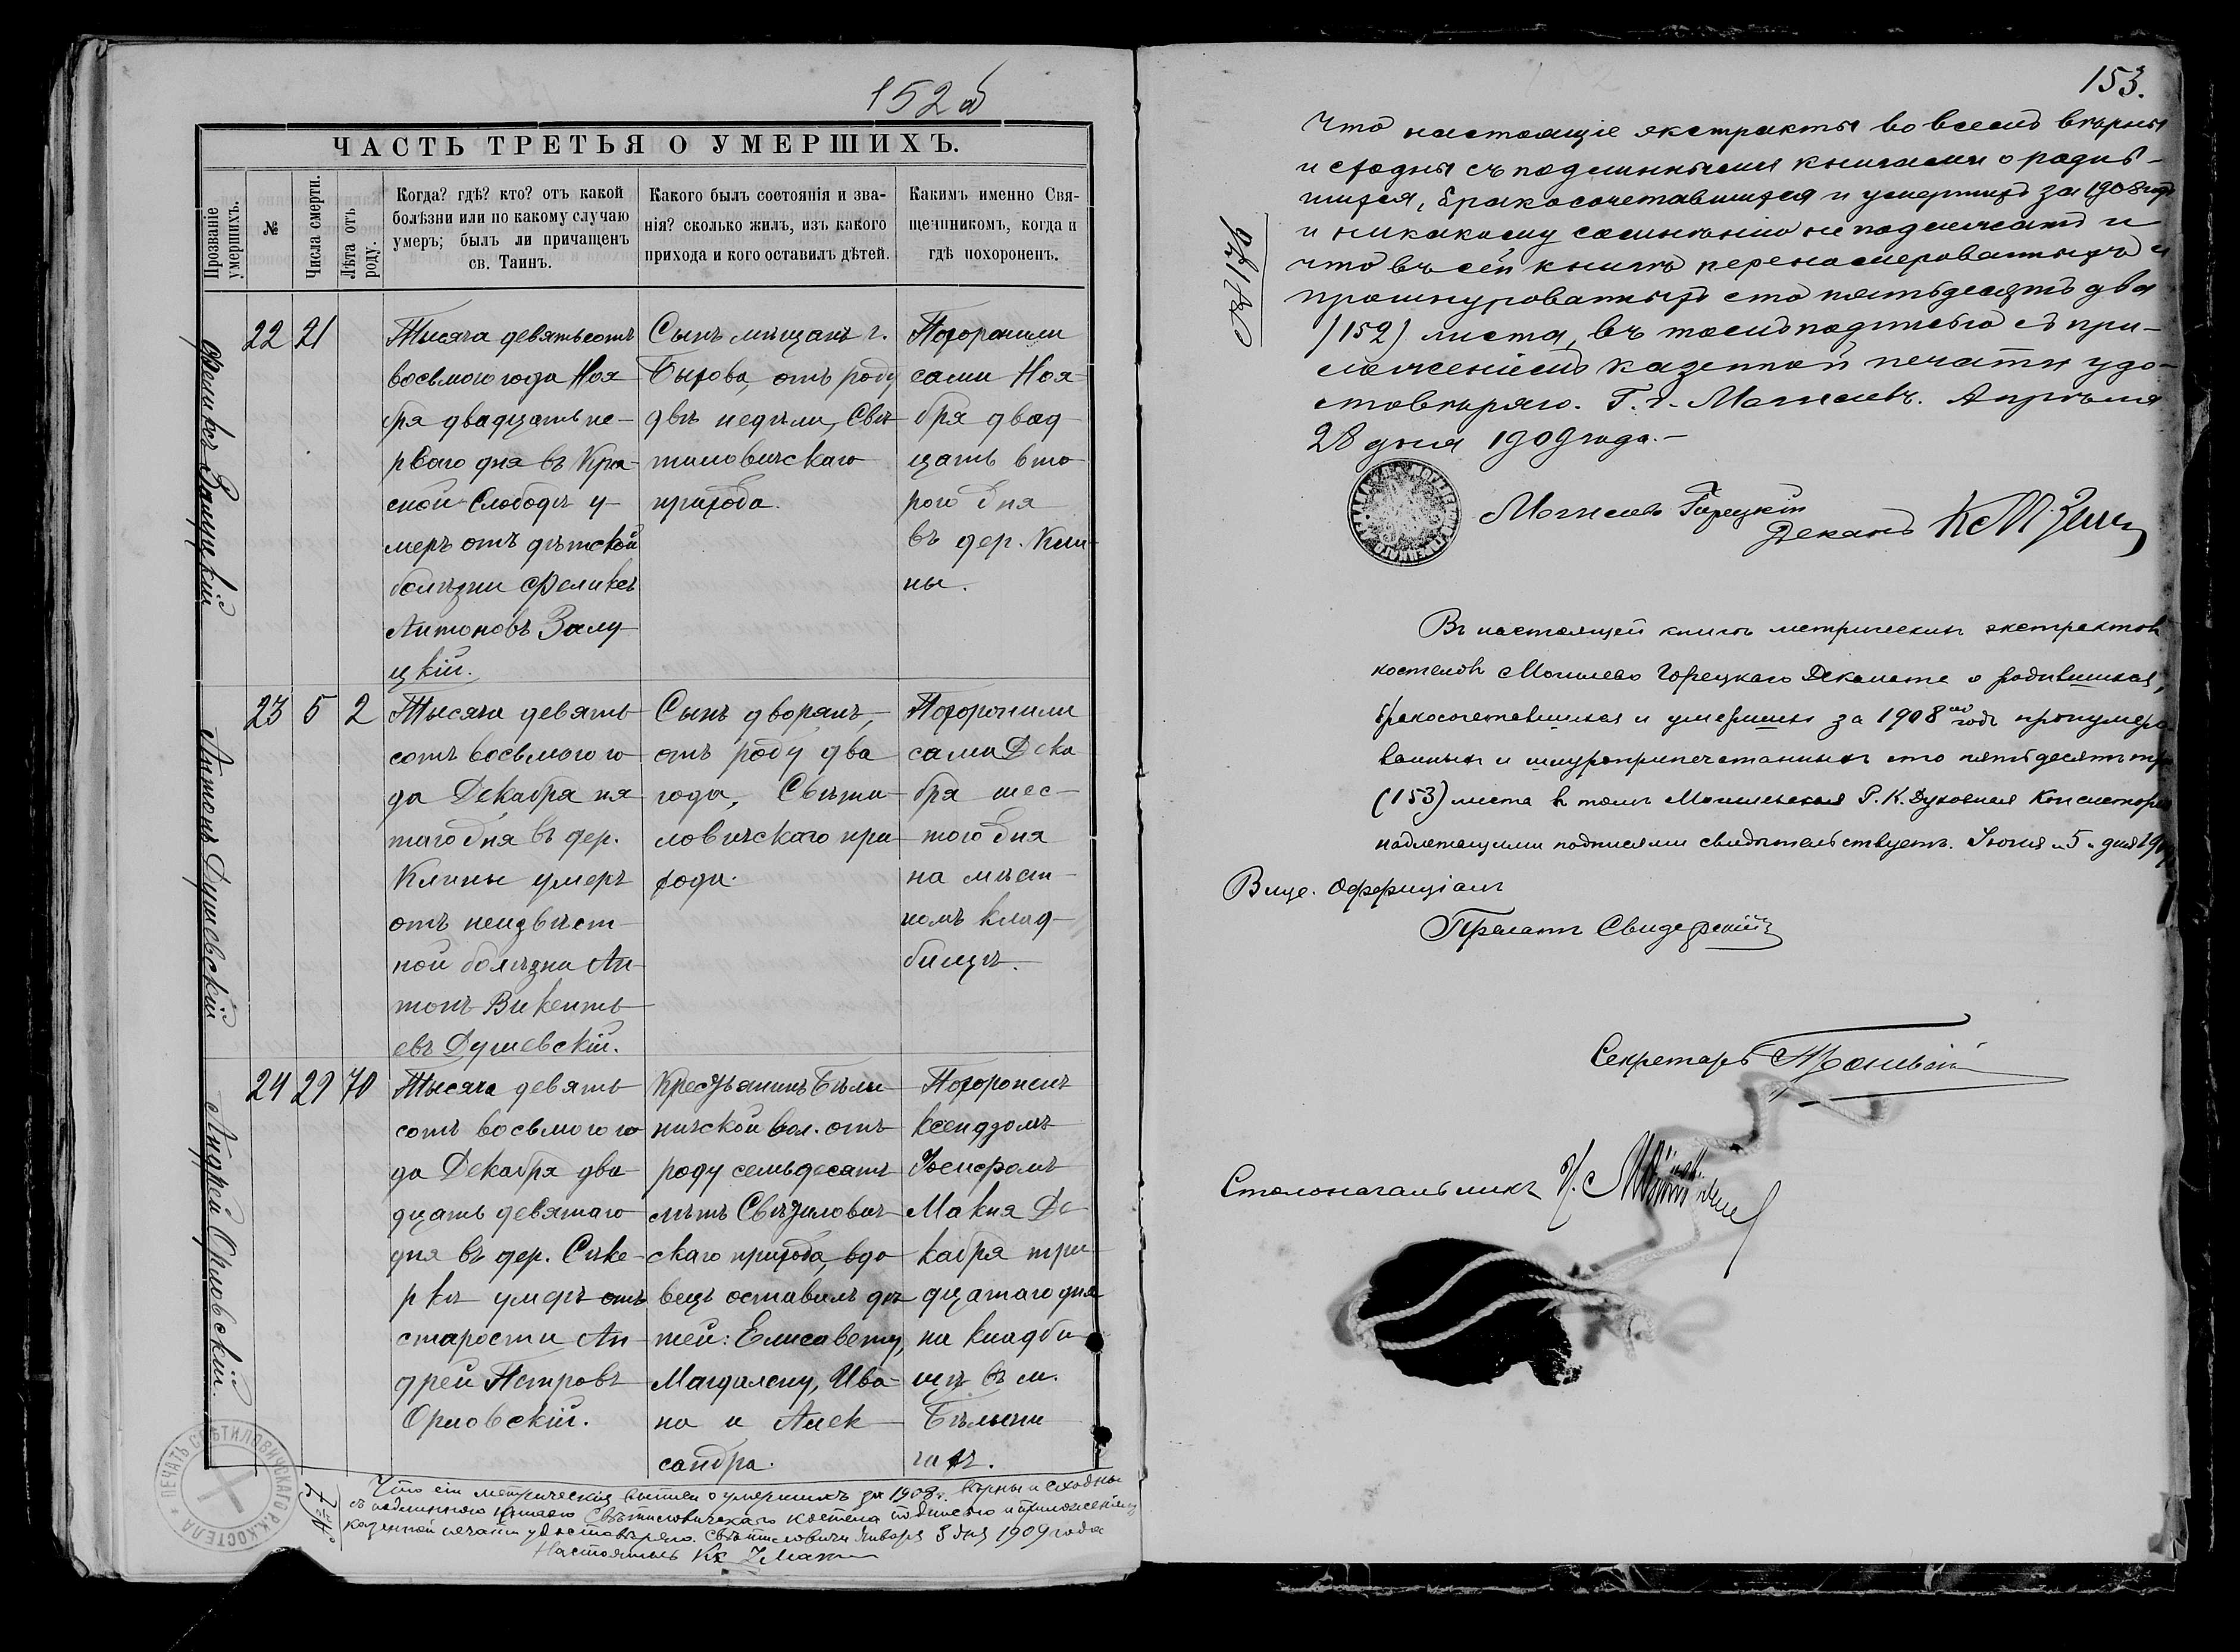 152 об
ЧАСТЬ ТРЕТЬЯ О УМЕРШИХЪ.
Прозваніе умершихъ.
№
Числа смерти.
Лѣта отъ роду.
Когда? гдѣ? кто? отъ какой
болѣзни или по какому случаю
умеръ; былъ ли причащенъ
св. Таинъ.
Какого былъ состоянія и зва-
нія? сколько жилъ, изъ какого
прихода и кого оставилъ дѣтей.
Какимъ именно Свя-
щенникомъ, когда и
гдѣ похороненъ.
Феликсъ Залуцкій
22 21
Тысяча девятьсотъ
восьмого года Ноя
бря двадцать пе-
рваго дня въ Кра-
сной Слободѣ у-
меръ отъ дѣтской
болѣзни Феликсъ
Антоновъ Залу-
цкій.
Сынъ мѣщанъ г.
Быхова, отъ роду
двѣ недѣли, Свѣ-
тиловичскаго
прихода.
Похоронили
сами Ноя-
бря двад-
цать вто
рого дня
въ дер. Кли-
ны.
Антонъ Душевскій
23 5 2
Тысяча девять-
сотъ восьмого го-
да Декабря пя
таго дня въ дер.
Клины умеръ
отъ неизвѣст-
ной болѣзни Ан-
тонъ Викенть-
евъ Душевскій.
Сынъ дворянъ,
отъ роду два
года, Свѣти-
ловичскаго при-
хода.
Похоронили
сами Дека
бря шес-
того дня
на мѣст-
номъ клад-
бищѣ.
Андрей Орловскій
24 29 70
Тысяча девять-
сотъ восьмого го
да Декабря два-
дцать девятаго
дня въ дер. Сике-
ркѣ умеръ отъ
старости Ан-
дрей Петровъ
Орловскій.
Крестьянинъ Бѣлы
ничской вол. отъ
роду семьдесятъ
лѣтъ Свѣтилович-
скаго прихода, вдо
вецъ оставилъ дѣ-
тей: Елисавету,
Магдалену, Ива-
на и Алек-
сандра.
Похороненъ
ксендзомъ
Іосифомъ
Макня Де
кабря три-
дцатаго дня
на кладби
щѣ въ м.
Бѣлыни
чахъ.
ПЕЧАТЬ СВѢТИЛОВИЧСКАГО Р.К. КОСТЕЛА
№ 7
Что сіи метрическія выписи о умершихъ за 1908 г. вѣрны и сходны
съ подлинною книгою Свѣтиловичскаго костела подписью и приложеніемъ
казенной печати удостовѣряю. Свѣтиловичи Января 3 дня 1909 года
Настоятель Кс.
153.
Что настоящіе экстракты во всемъ вѣрны
и сходны съ подлинными книгами о родив-
шихся, бракосочетавшихся и умершихъ за 1908 годъ
и никакому сомнѣнію не подлежатъ и
что въ сей книгѣ перенумерованныхъ и
прошнурованныхъ сто пятьдесятъ два
(152) листа, въ томъ подписью съ при-
ложеніемъ казенной печати удо-
стовѣряю. Г. г. Могилевъ. Апрѣля
28 дня 1909 года.-
№ 176
Могилево Горецкій
Деканъ
Въ настоящей книгѣ метрическихъ экстрактовъ
костеловъ Могилево Горецкаго Деканата о родившихся,
бракосочетавшихся и умершихъ за 1908 годъ пронумеро
ванныхъ и шнуроприпечатанныхъ сто пятьдесятъ три
(153) листа въ томъ Могилевская Р. К. Духовная Консисторія
надлежащими подписями свидѣтельствуетъ. Іюня 5 дня 19
Вице-Оффиціалъ
Прелатъ Свидерскій
Секретарь
Столоначальникъ